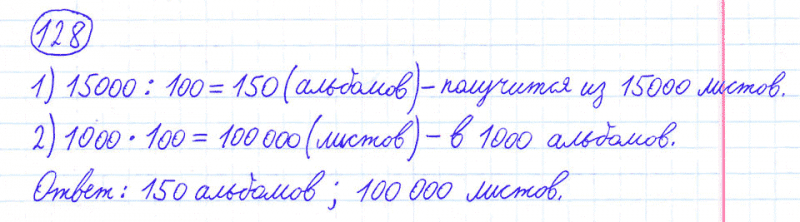 128
1) 15000 : 100 = 150 (альбомов) – получится из 15000 листов.
2) 1000 · 100 = 100 000 (листов) – в 1000 альбомов.
Ответ: 150 альбомов ; 100 000 листов.